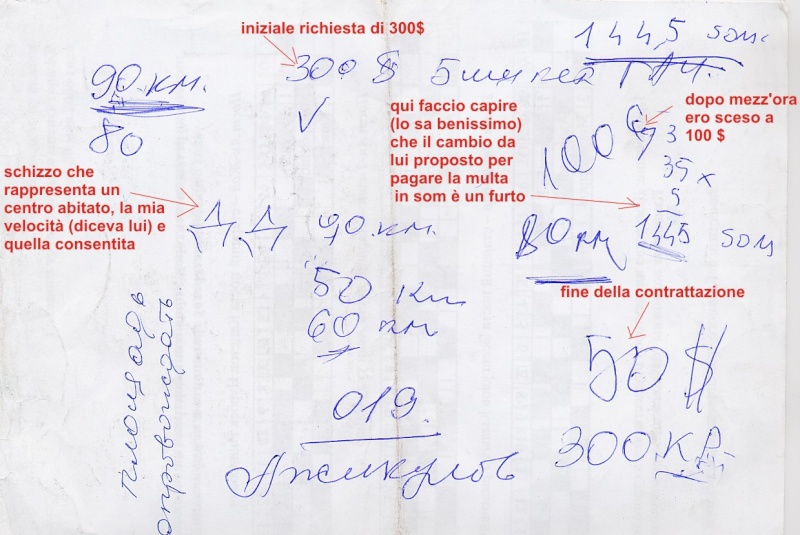 iniziale richiesta di 300$
1445 som.
90 км.
80
300 $
V
qui faccio capire
(lo sa benissimo)
che il cambio da
lui proposto per
pagare la multa
in som è un furto
dopo mezz'ora
ero sceso a
100 $
100
35 x
1445 som
80 км
schizzo che
rappresenta un
centro abitato, la mia
velocità (diceva lui) e
quella consentita
90 км.
50 км
60 км
fine della contrattazione
50 $
019.
300 KP
Площадь